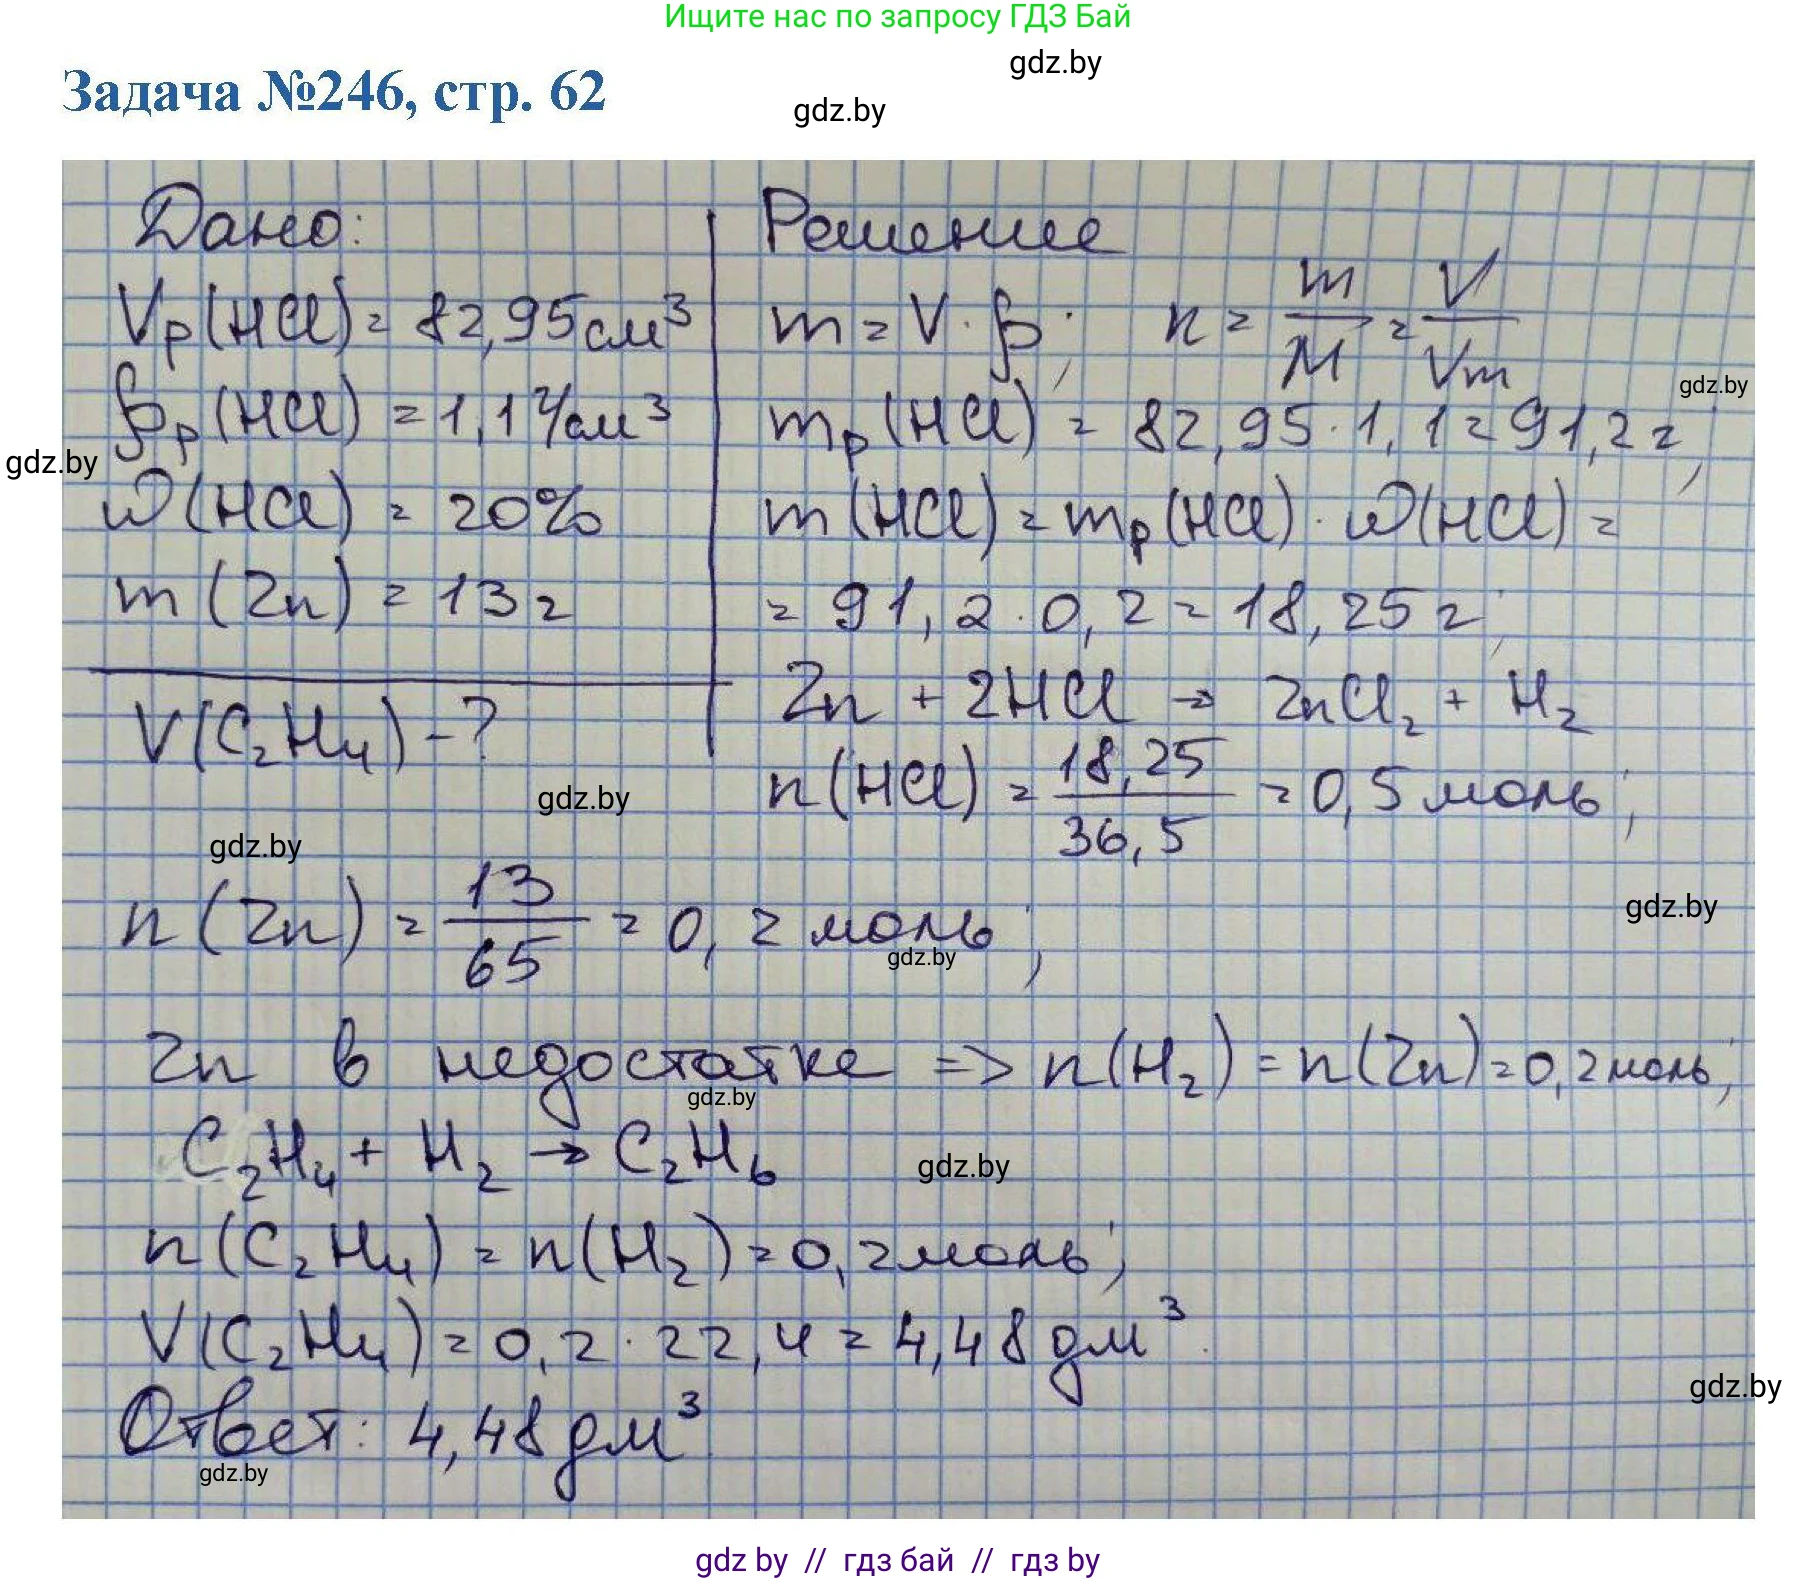 Ищите нас по запросу ГДЗ Бай
gdz.by
Задача №246, стр. 62
gdz.by
Дано:
Vр(HCl) = 82,95 см³
ρр(HCl) = 1,1 г/см³
gdz.by
ω(HCl) = 20%
m(Zn) = 13 г
V(C₂H₄) - ?
Решение
m = V · ρ; n = m/M = V/Vm
gdz.by
mр(HCl) = 82,95 · 1,1 = 91,2 г;
m(HCl) = mр(HCl) · ω(HCl) =
= 91,2 · 0,2 = 18,25 г;
Zn + 2HCl → ZnCl₂ + H₂
n(HCl) = 18,25/36,5 = 0,5 моль;
gdz.by
gdz.by
gdz.by
n(Zn) = 13/65 = 0,2 моль;
gdz.by
Zn в недостатке => n(H₂) = n(Zn) = 0,2 моль;
gdz.by
C₂H₄ + H₂ → C₂H₆
gdz.by
n(C₂H₄) = n(H₂) = 0,2 моль;
V(C₂H₄) = 0,2 · 22,4 = 4,48 дм³.
gdz.by
Ответ: 4,48 дм³.
gdz.by
gdz by // гдз бай // гдз by